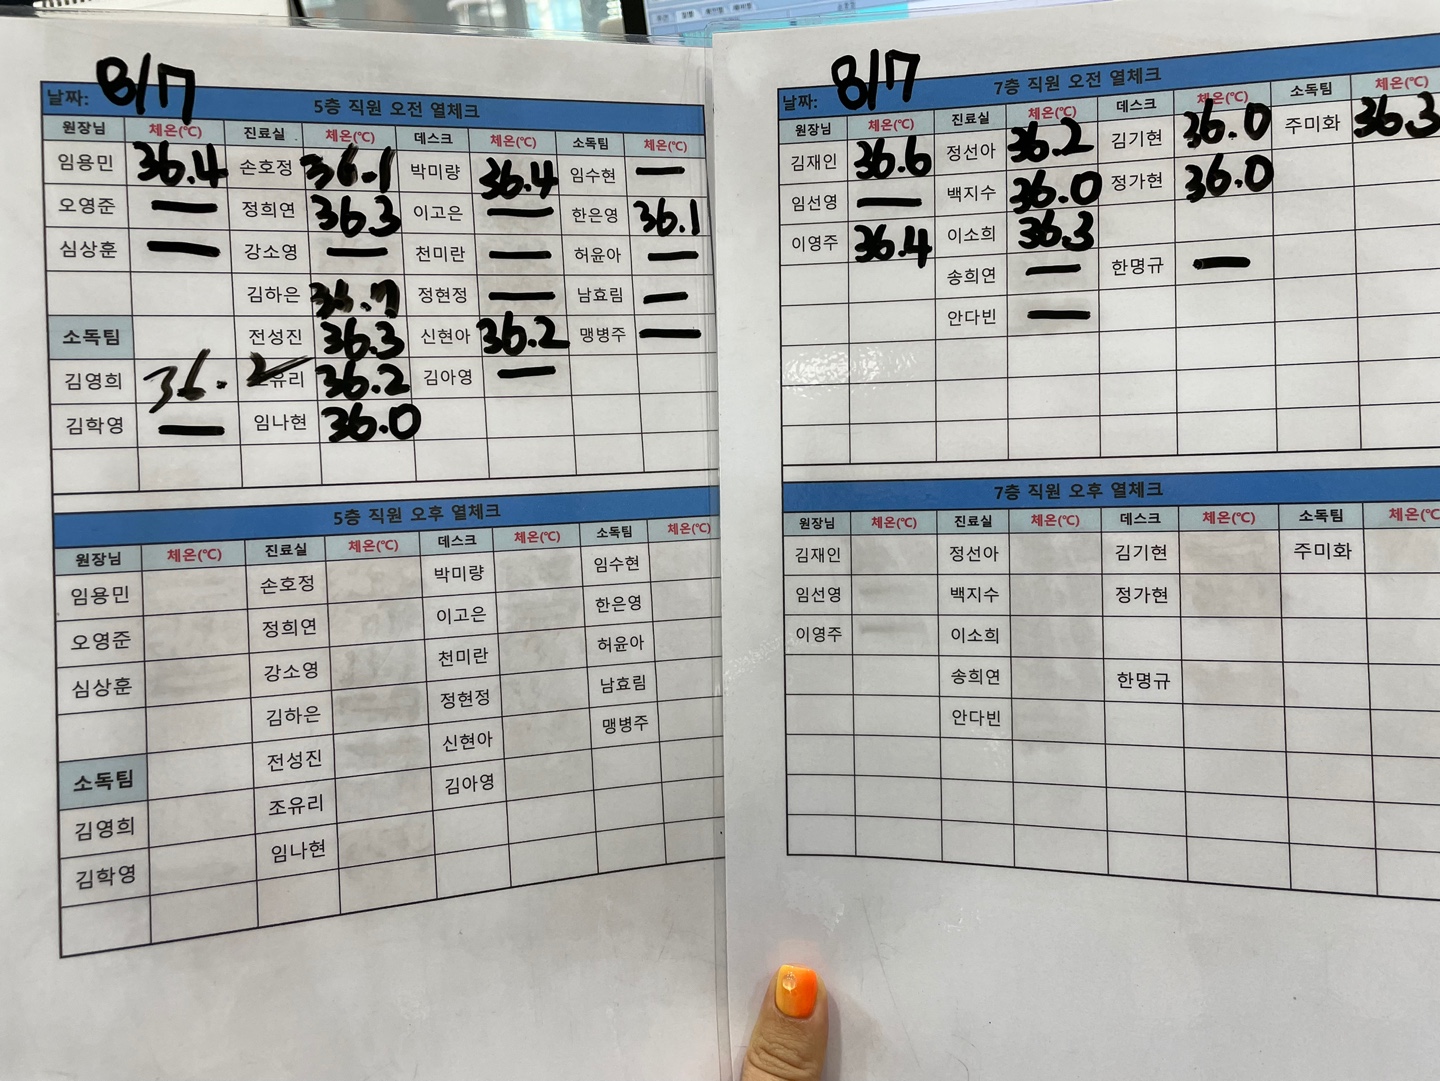 날짜: 8/17
5층 직원 오전 열체크
원장님 체온(℃) 진료실 체온(℃) 데스크 체온(℃) 소독팀 체온(℃)
임용민 36.4 손호정 36.1 박미량 36.4 임수현 —
오영준 — 정희연 36.3 이고은 — 한은영 36.1
심상훈 — 강소영 — 천미란 — 허윤아 —
김하은 36.7 정현정 — 남효림 —
소독팀 전성진 36.3 신현아 36.2 맹병주 —
김영희 36.2 유리 36.2 김아영 —
김학영 — 임나현 36.0
5층 직원 오후 열체크
원장님 체온(℃) 진료실 체온(℃) 데스크 체온(℃) 소독팀 체온(℃)
임용민 손호정 박미량 임수현
오영준 정희연 이고은 한은영
심상훈 강소영 천미란 허윤아
김하은 정현정 남효림
소독팀 전성진 신현아 맹병주
김영희 조유리 김아영
김학영 임나현
날짜: 8/17
7층 직원 오전 열체크
원장님 체온(℃) 진료실 체온(℃) 데스크 체온(℃) 소독팀 체온(℃)
김재인 36.6 정선아 36.2 김기현 36.0 주미화 36.3
임선영 — 백지수 36.0 정가현 36.0
이영주 36.4 이소희 36.3
송희연 — 한명규 —
안다빈 —
7층 직원 오후 열체크
원장님 체온(℃) 진료실 체온(℃) 데스크 체온(℃) 소독팀 체온(℃
김재인 정선아 김기현 주미화
임선영 백지수 정가현
이영주 이소희
송희연 한명규
안다빈